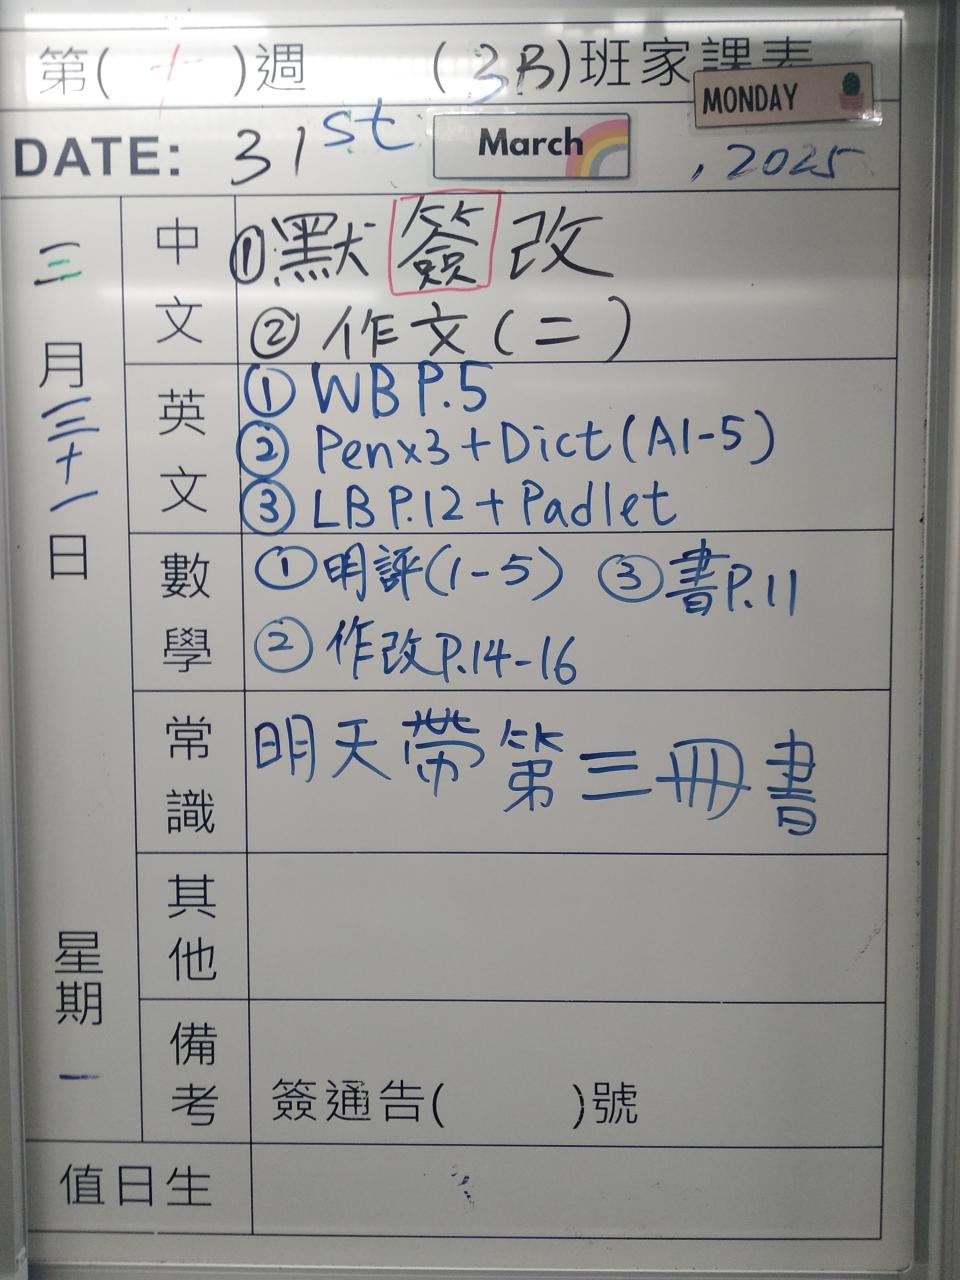 第(十)週 (3B)班家課表
MONDAY
DATE: 31st March, 2025
三月三十一日
星期一
中文
①默簽改
②作文(二)
英文
①WB P.5
②Penx3+Dict(A1-5)
③LB P.12+Padlet
數學
①明評(1-5) ③書P.11
②作改P.14-16
常識
明天帶第三冊書
其他
備考
簽通告( )號
值日生